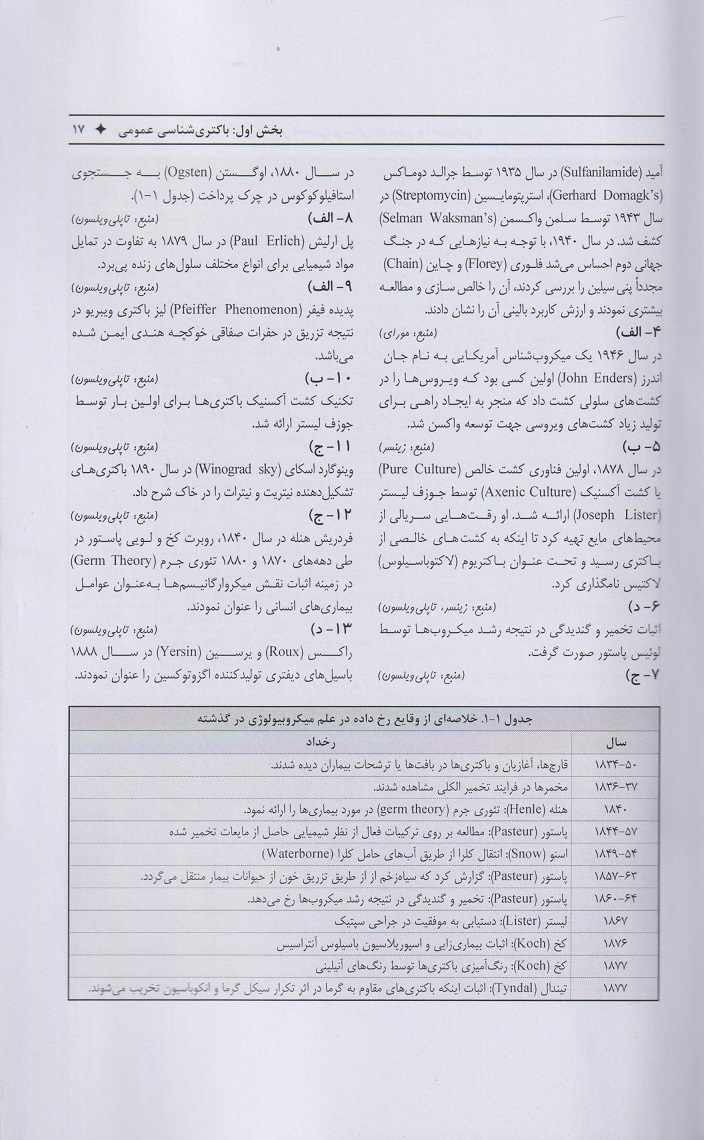 بخش اول: باکتری‌شناسی عمومی ✦ ۱۷
آمید (Sulfanilamide) در سال ۱۹۳۵ توسط جرالد دوماکس
(Gerhard Domagk's)، استرپتومایسین (Streptomycin) در
سال ۱۹۴۳ توسط سلمن واکسمن (Selman Waksman's)
کشف شد. در سال ۱۹۴۰، با توجه به نیازهایی که در جنگ
جهانی دوم احساس می‌شد فلوری (Florey) و چاین (Chain)
مجدداً پنی سیلین را بررسی کردند، آن را خالص سازی و مطالعه
بیشتری نمودند و ارزش کاربرد بالینی آن را نشان دادند.
۴- الف) (منبع: مورای)
در سال ۱۹۴۶ یک میکروب‌شناس آمریکایی به نام جان
اندرز (John Enders) اولین کسی بود که ویروس‌ها را در
کشت‌های سلولی کشت داد که منجر به ایجاد راهی برای
تولید زیاد کشت‌های ویروسی جهت توسعه واکسن شد.
۵- ب) (منبع: زینسر)
در سال ۱۸۷۸، اولین فناوری کشت خالص (Pure Culture)
یا کشت آکسنیک (Axenic Culture) توسط جوزف لیستر
(Joseph Lister) ارائه شد. او رقت‌هایی سریالی از
محیط‌های مایع تهیه کرد تا اینکه به کشت‌های خالصی از
باکتری رسید و تحت عنوان باکتریوم (لاکتوباسیلوس)
لاکتیس نامگذاری کرد.
۶- د) (منبع: زینسر، تاپلی‌ویلسون)
اثبات تخمیر و گندیدگی در نتیجه رشد میکروب‌ها توسط
لوئیس پاستور صورت گرفت.
۷- ج) (منبع: تاپلی‌ویلسون)
در سال ۱۸۸۰، اوگستن (Ogsten) به جستجوی
استافیلوکوکوس در چرک پرداخت (جدول ۱-۱).
۸- الف) (منبع: تاپلی‌ویلسون)
پل ارلیش (Paul Erlich) در سال ۱۸۷۹ به تفاوت در تمایل
مواد شیمیایی برای انواع مختلف سلول‌های زنده پی‌برد.
۹- الف) (منبع: تاپلی‌ویلسون)
پدیده فیفر (Pfeiffer Phenomenon) لیز باکتری ویبریو در
نتیجه تزریق در حفرات صفاقی خوکچه هندی ایمن شده
می‌باشد.
۱۰- ب) (منبع: تاپلی‌ویلسون)
تکنیک کشت آکسنیک باکتری‌ها برای اولین بار توسط
جوزف لیستر ارائه شد.
۱۱- ج) (منبع: تاپلی‌ویلسون)
وینوگارد اسکای (Winograd sky) در سال ۱۸۹۰ باکتری‌های
تشکیل‌دهنده نیتریت و نیترات را در خاک شرح داد.
۱۲- ج) (منبع: تاپلی‌ویلسون)
فردریش هنله در سال ۱۸۴۰، روبرت کخ و لویی پاستور در
طی دهه‌های ۱۸۷۰ و ۱۸۸۰ تئوری جرم (Germ Theory)
در زمینه اثبات نقش میکروارگانیسم‌ها به‌عنوان عوامل
بیماری‌های انسانی را عنوان نمودند.
۱۳- د) (منبع: تاپلی‌ویلسون)
راکس (Roux) و یرسین (Yersin) در سال ۱۸۸۸
باسیل‌های دیفتری تولیدکننده اگزوتوکسین را عنوان نمودند.
جدول ۱-۱. خلاصه‌ای از وقایع رخ داده در علم میکروبیولوژی در گذشته
سال رخداد
۱۸۳۴-۵۰ قارچ‌ها، آغازیان و باکتری‌ها در بافت‌ها یا ترشحات بیماران دیده شدند.
۱۸۳۶-۳۷ مخمرها در فرایند تخمیر الکلی مشاهده شدند.
۱۸۴۰ هنله (Henle): تئوری جرم (germ theory) در مورد بیماری‌ها را ارائه نمود.
۱۸۴۴-۵۷ پاستور (Pasteur): مطالعه بر روی ترکیبات فعال از نظر شیمیایی حاصل از مایعات تخمیر شده
۱۸۴۹-۵۴ اسنو (Snow): انتقال کلرا از طریق آب‌های حامل کلرا (Waterborne)
۱۸۵۷-۶۳ پاستور (Pasteur): گزارش کرد که سیاه‌زخم از از طریق تزریق خون از حیوانات بیمار منتقل می‌گردد.
۱۸۶۰-۶۴ پاستور (Pasteur): تخمیر و گندیدگی در نتیجه رشد میکروب‌ها رخ می‌دهد.
۱۸۶۷ لیستر (Lister): دستیابی به موفقیت در جراحی سپتیک
۱۸۷۶ کخ (Koch): اثبات بیماری‌زایی و اسپوریلاسیون باسیلوس آنتراسیس
۱۸۷۷ کخ (Koch): رنگ‌آمیزی باکتری‌ها توسط رنگ‌های آنیلینی
۱۸۷۷ تیندال (Tyndal): اثبات اینکه باکتری‌های مقاوم به گرما در اثر تکرار سیکل گرما و انکوباسیون تخریب می‌شوند.